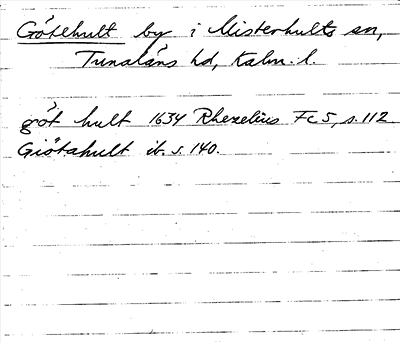 Götehult by i Misterhults sn,
Tunaläns hd, Kalm. l.
göt hult 1634 Rhezelius Fc5, s. 112
Giötahult ib. s. 140.